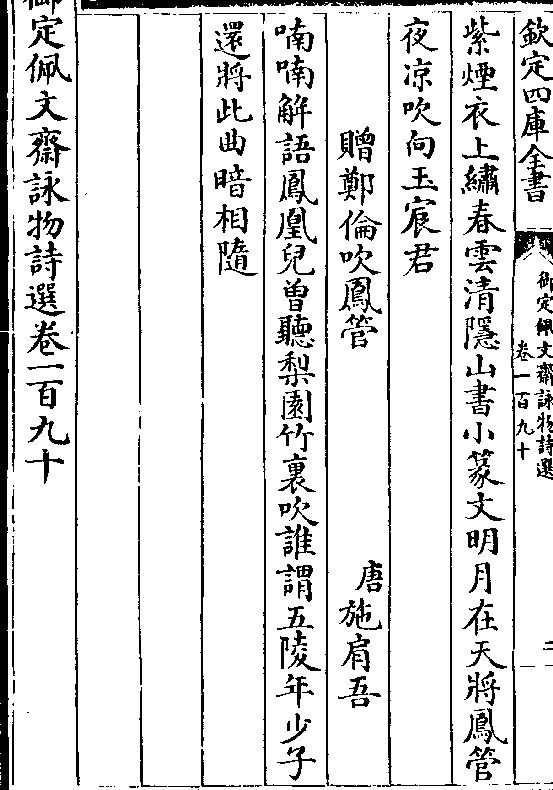 欽定四庫全書
御定佩文齋詠物詩選
卷一百九十
二
紫煙衣上繡春雲清隱山書小篆文明月在天將鳳管
夜凉吹向玉宸君
贈鄭倫吹鳳管
唐施肩吾
喃喃解語鳳凰兒曽聽梨園竹裏吹誰謂五陵年少子
還將此曲暗相隨
御定佩文齋詠物詩選卷一百九十